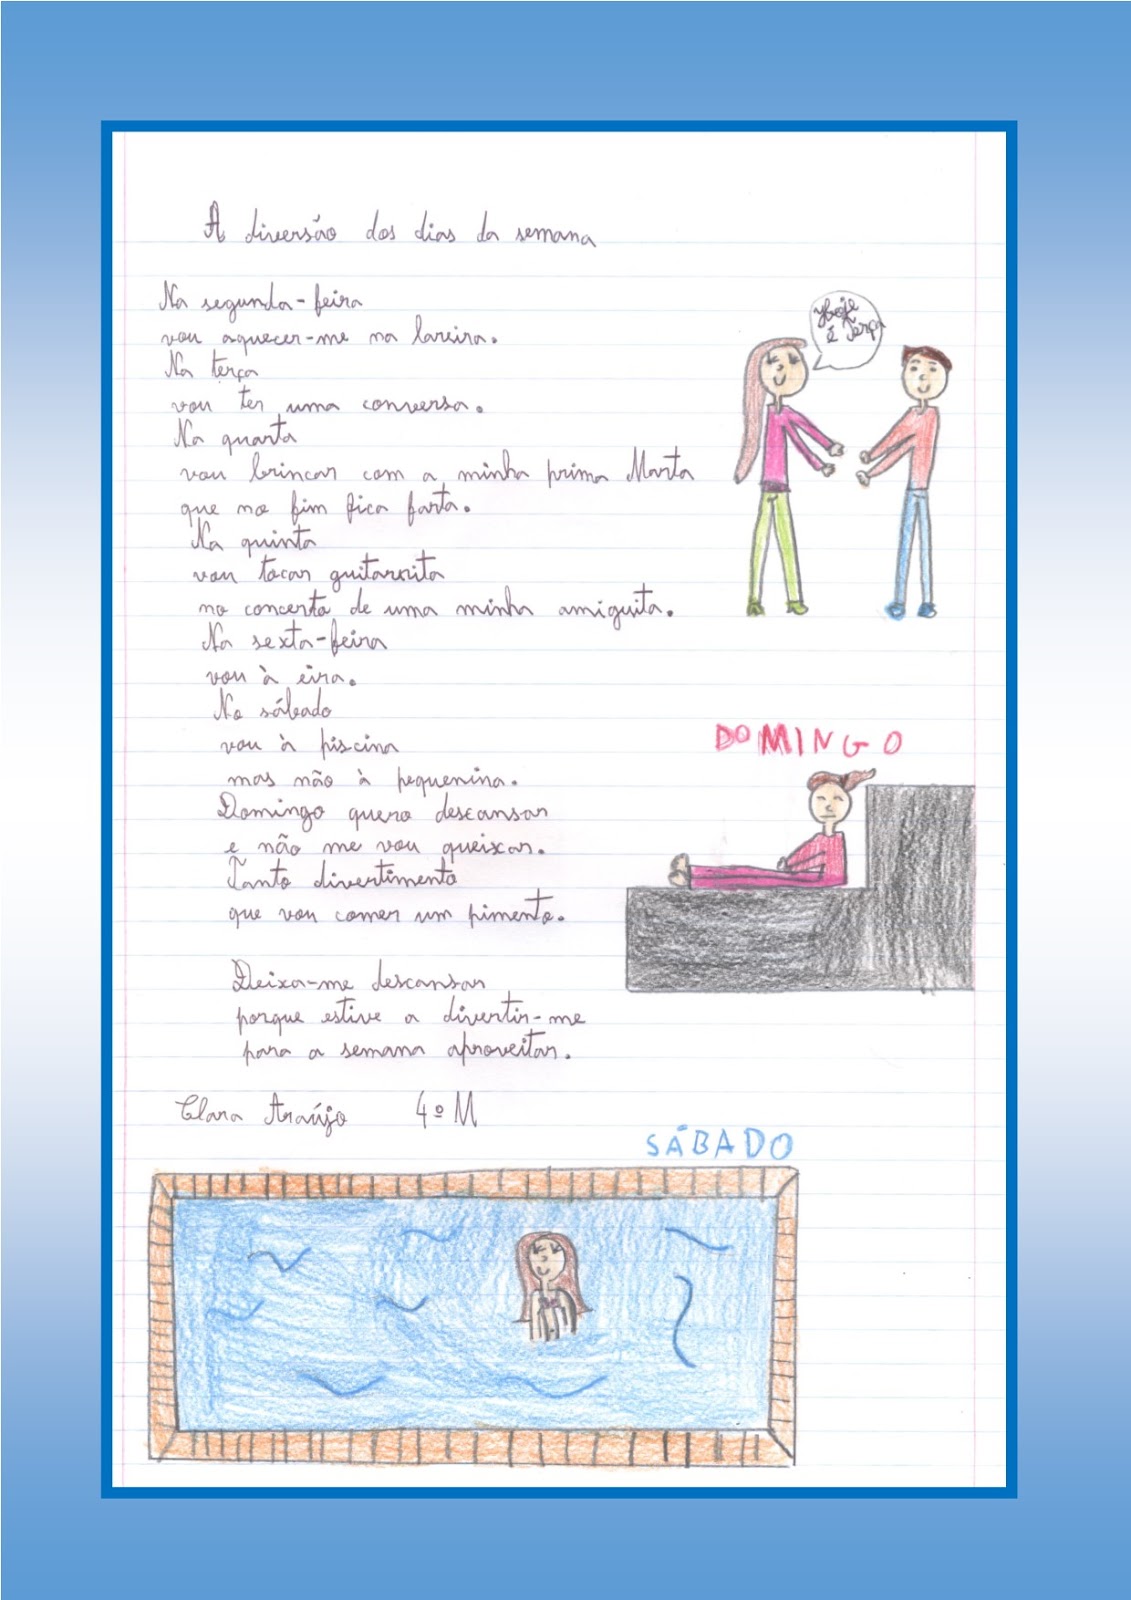 A diversão dos dias da semana
Na segunda-feira
vou aquecer-me na lareira.
Na terça
vou ter uma conversa.
Na quarta
vou brincar com a minha prima Marta
que no fim fica farta.
Na quinta
vou tocar guitarrita
no concerto de uma minha amiguita.
Na sexta-feira
vou à eira.
No sábado
vou à piscina
mas não à pequenina.
Domingo quero descansar
e não me vou queixar.
Tanto divertimento
que vou comer um pimento.
Deixa-me descansar
porque estive a divertir-me
para a semana aproveitar.
Clara Araújo 4º M
Hoje
é Terça
DOMINGO
SÁBADO